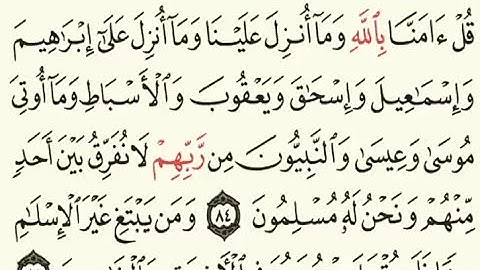 قُلْ ءَامَنَّا بِٱللَّهِ وَمَآ أُنزِلَ عَلَيْنَا وَمَآ أُنزِلَ عَلَىٰٓ إِبْرَٰهِيمَ
وَإِسْمَٰعِيلَ وَإِسْحَٰقَ وَيَعْقُوبَ وَٱلْأَسْبَاطِ وَمَآ أُوتِىَ
مُوسَىٰ وَعِيسَىٰ وَٱلنَّبِيُّونَ مِن رَّبِّهِمْ لَا نُفَرِّقُ بَيْنَ أَحَدٍ
مِّنْهُمْ وَنَحْنُ لَهُۥ مُسْلِمُونَ ٨٤ وَمَن يَبْتَغِ غَيْرَ ٱلْإِسْلَٰمِ